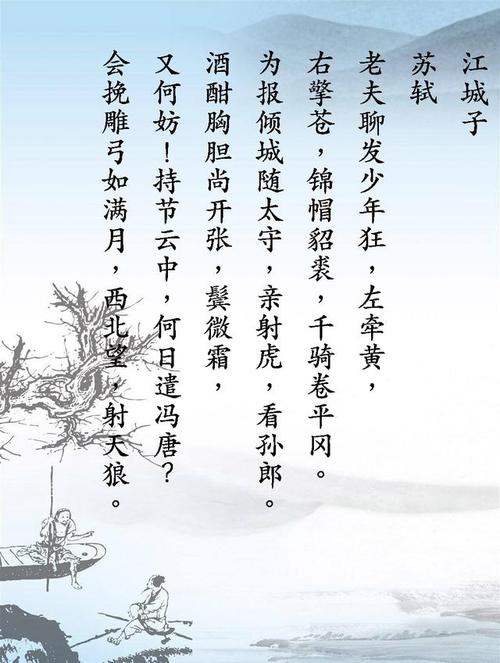 江城子
苏轼
老夫聊发少年狂，左牵黄，
右擎苍，锦帽貂裘，千骑卷平冈。
为报倾城随太守，亲射虎，看孙郎。
酒酣胸胆尚开张，鬓微霜，
又何妨！持节云中，何日遣冯唐？
会挽雕弓如满月，西北望，射天狼。